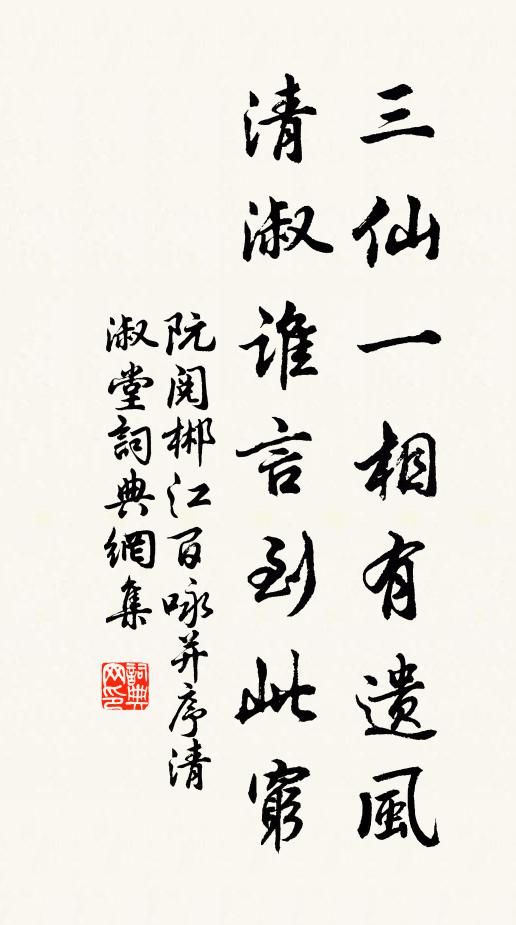 三仙一相有遺風
清淑誰言到此窮
阮閱郴江百咏并序清
淑堂詞典網集
詞典
网印